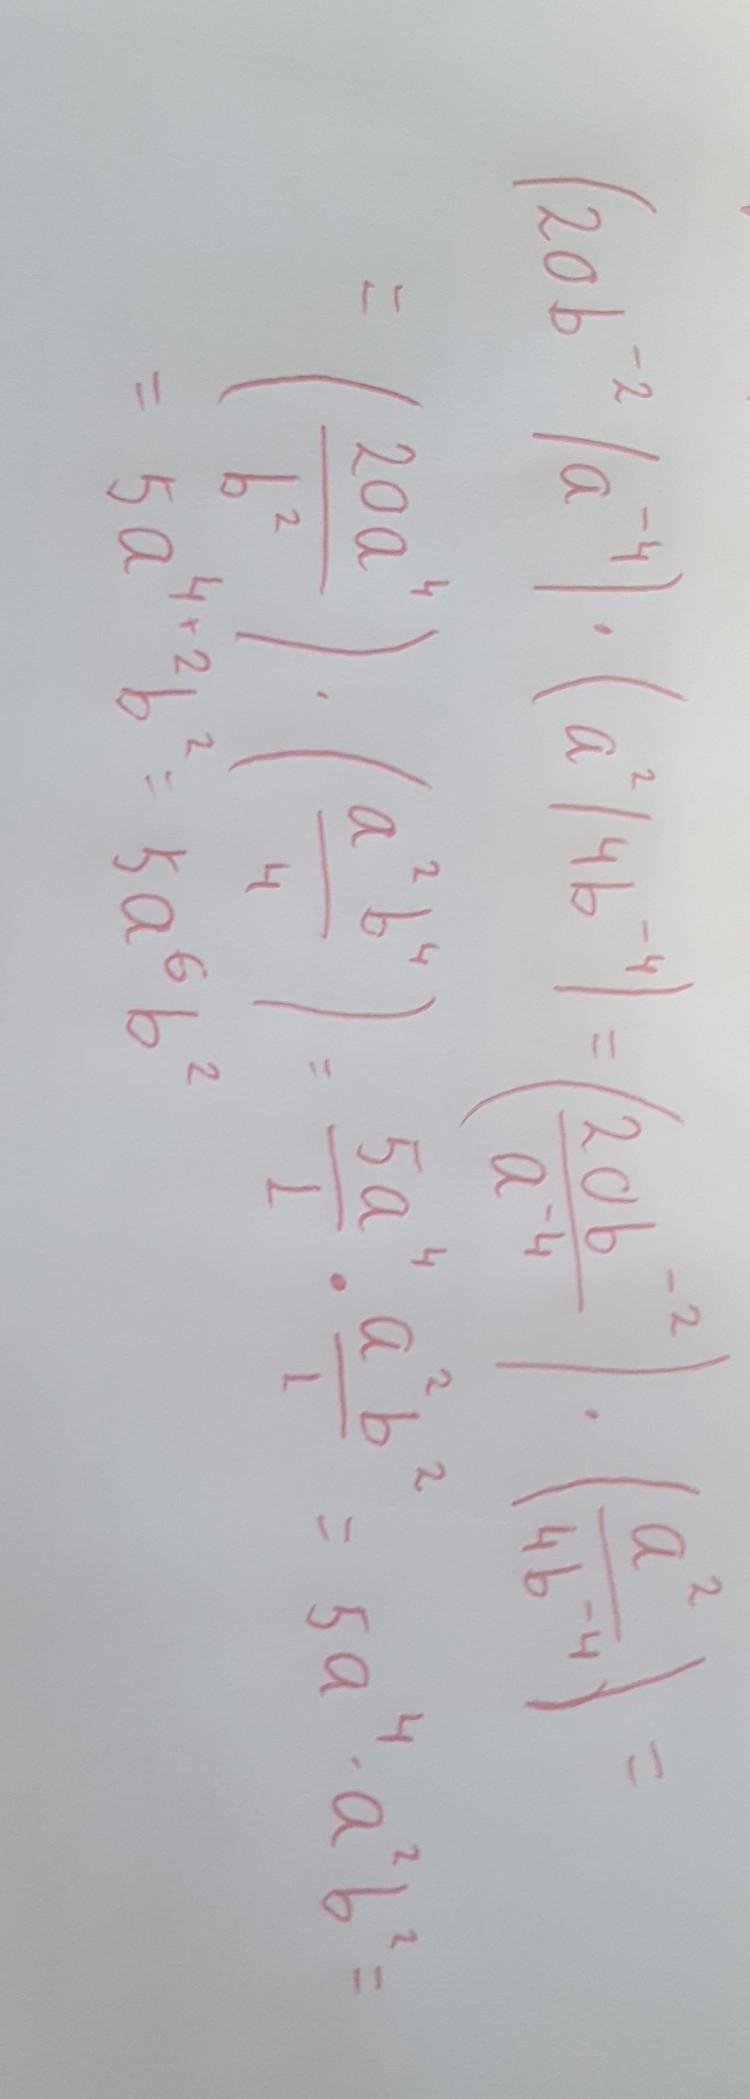 (20b⁻²/a⁻⁴)·(a²/4b⁻⁴) = (20b⁻²/a⁻⁴)·(a²/4b⁻⁴) =
= (20a⁴/b²)·(a²b⁴/4) = 5a⁴/1 · a²b²/1 = 5a⁴·a²b² =
= 5a⁴⁺²b² = 5a⁶b²